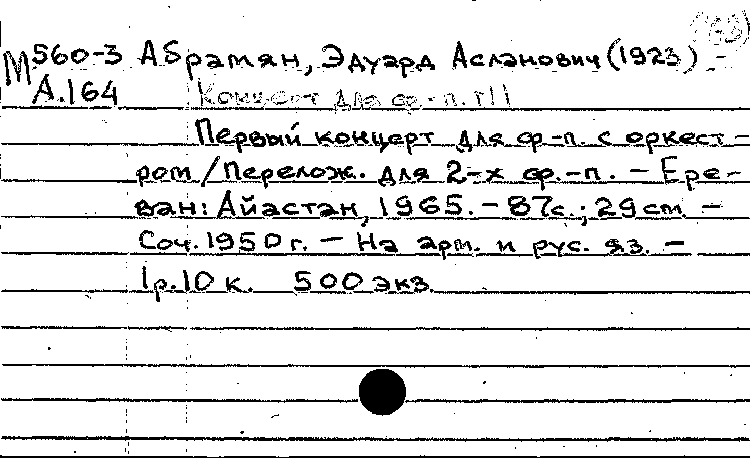 М560-3 Абрамян, Эдуард Асланович (1923) -
А.164 Концерт для ф.-п.
Первый концерт для ф-п. с оркест-
ром / Перелож. для 2-х ф.-п. - Ере-
ван: Айастан, 1965. - 87с.; 29см -
Соч. 1950 г. - На арм. и рус. яз. -
1р.10 к. 500 экз.